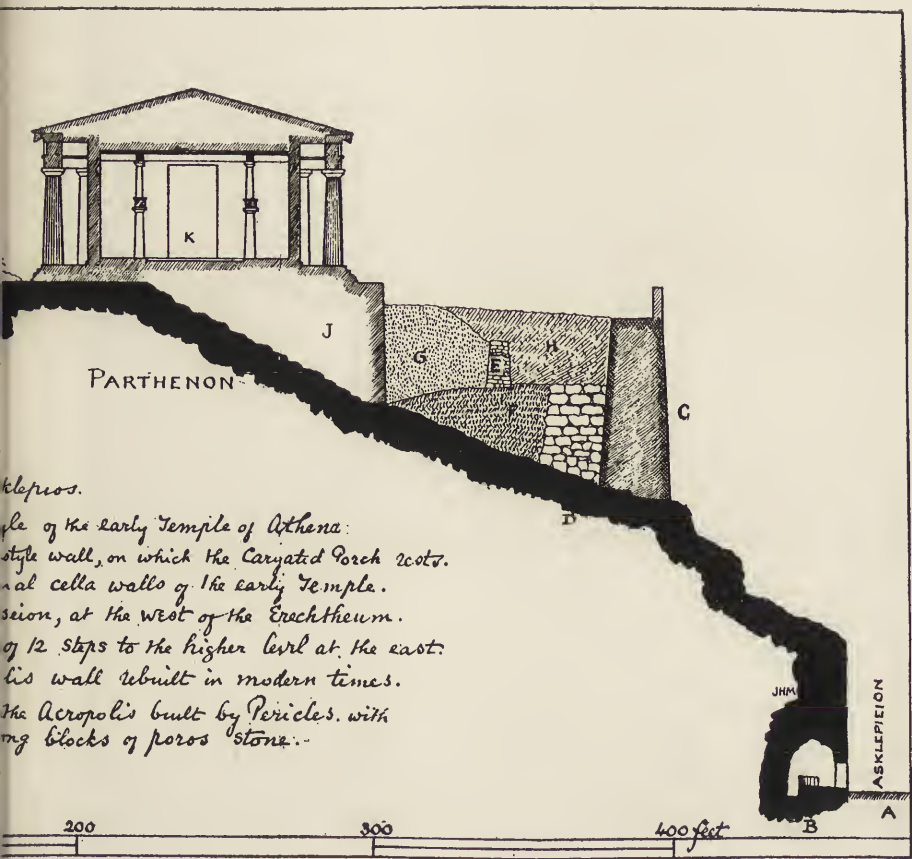 K
J
G
E
H
F
C
PARTHENON
D
klepios.
le of the early Temple of Athena:
style wall, on which the Caryatid Porch rests.
nal cella walls of the early Temple.
seion, at the west of the Erechtheum.
of 12 steps to the higher level at the east.
lis wall rebuilt in modern times.
the Acropolis built by Pericles. with
ng blocks of poros stone.
JHM
ASKLEPIEION
A
B
200
300
400 feet